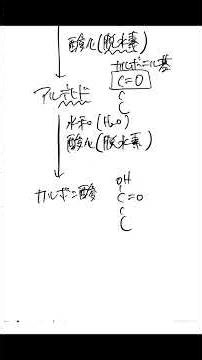 酸化(脱水素)
カルボニル基
C=O
アルデヒド
C
C
水和(H₂O)
酸化(脱水素)
OH
カルボン酸 C=O
C
C